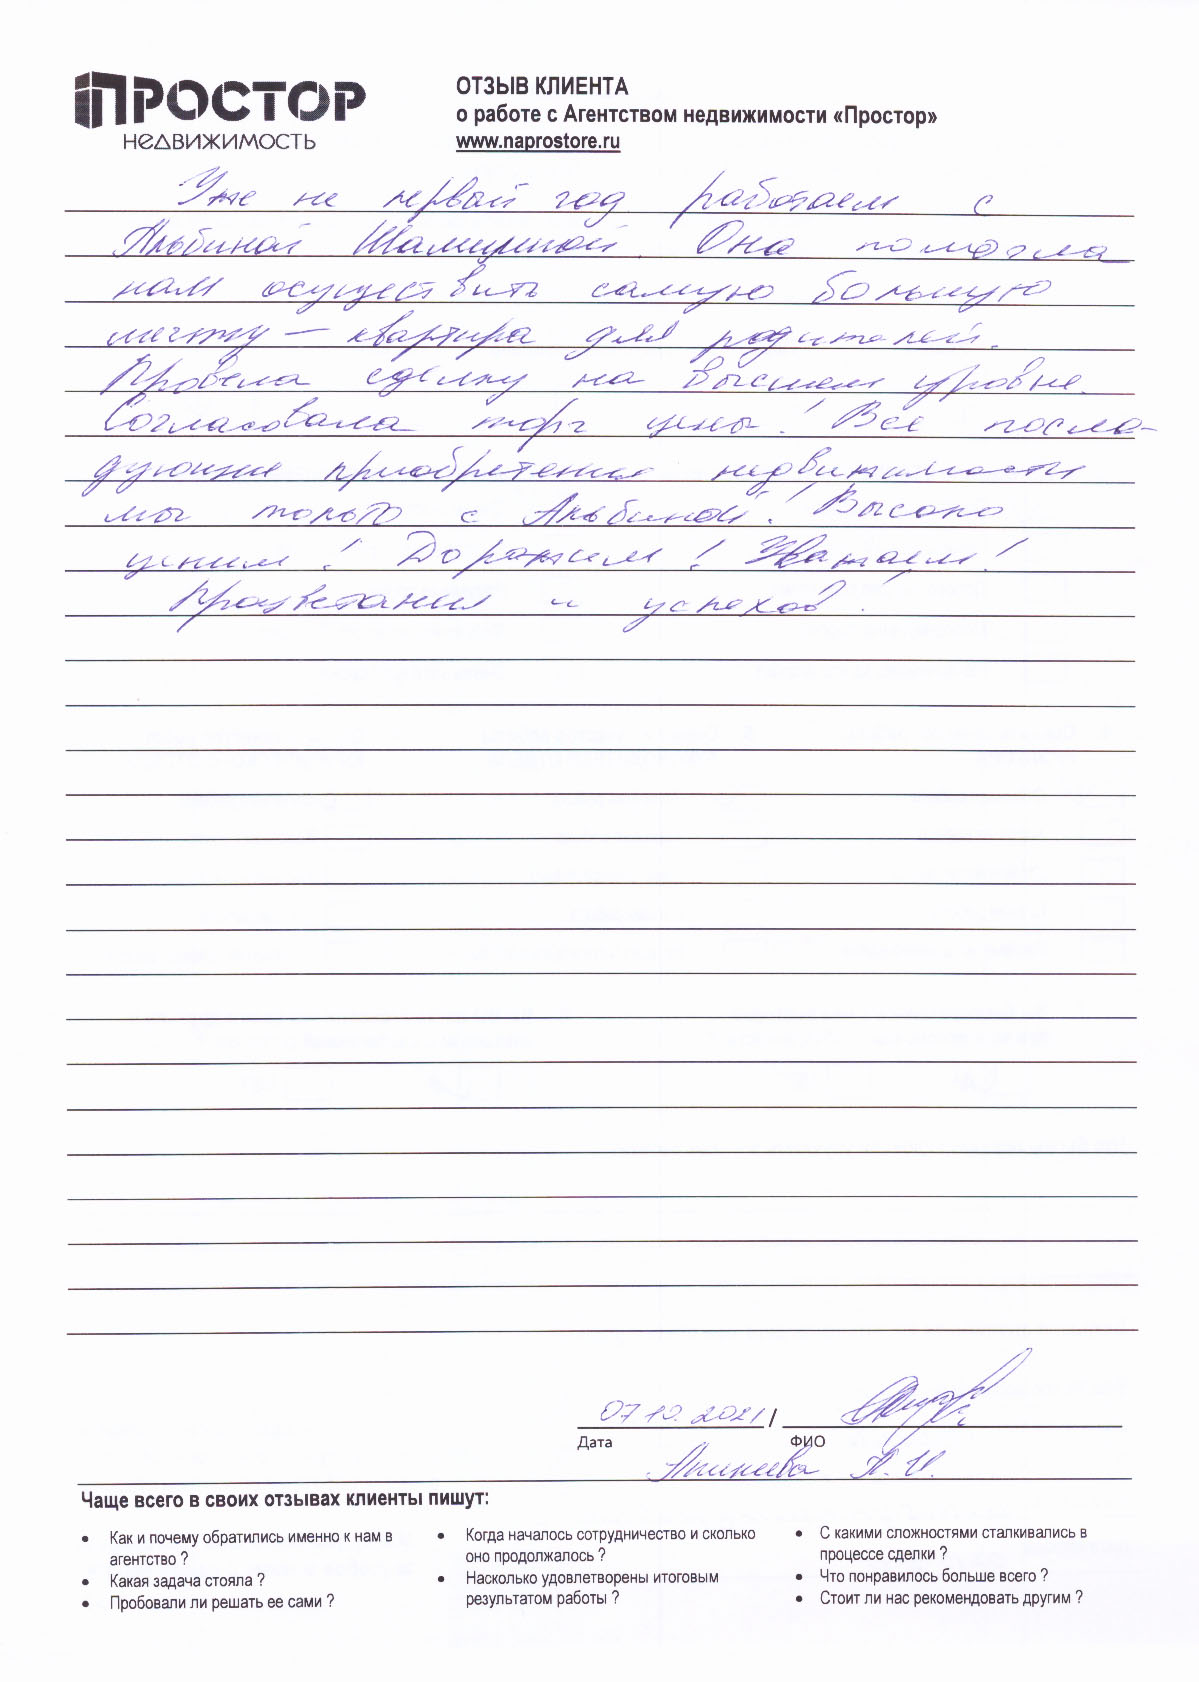 ПРОСТОР
НЕДВИЖИМОСТЬ
ОТЗЫВ КЛИЕНТА
о работе с Агентством недвижимости «Простор»
www.naprostore.ru
Уже не первый год работаем с
Альбиной Шамшиной. Она помогла
нам осуществить самую большую
мечту — квартира для родителей.
Провела сделку на высшем уровне.
Согласовала торг цены! Все после-
дующие приобретения недвижимости
мы только с Альбиной! Высоко
ценим! Дорожим! Уважаем!
Процветания и успехов.
07.10.2021 /
Дата ФИО
А. И.
Чаще всего в своих отзывах клиенты пишут:
• Как и почему обратились именно к нам в
агентство ?
• Какая задача стояла ?
• Пробовали ли решать ее сами ?
• Когда началось сотрудничество и сколько
оно продолжалось ?
• Насколько удовлетворены итоговым
результатом работы ?
• С какими сложностями сталкивались в
процессе сделки ?
• Что понравилось больше всего ?
• Стоит ли нас рекомендовать другим ?